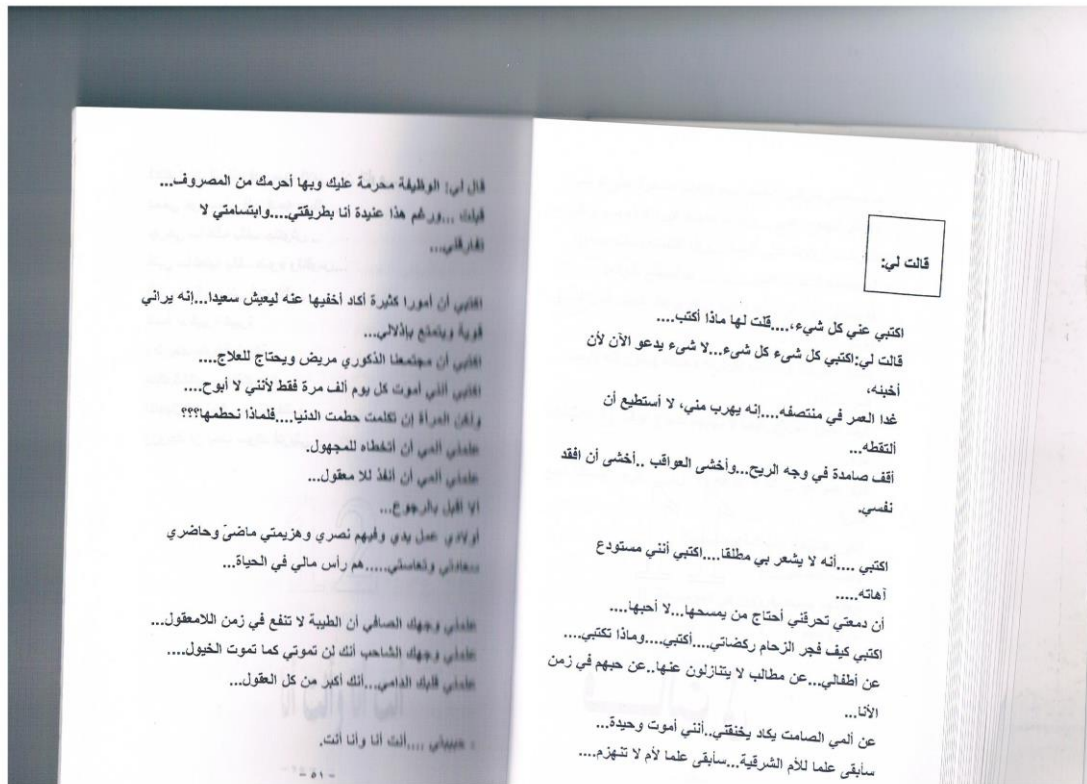 قالت لي:
اكتبي عني كل شيء،....قلت لها ماذا أكتب....
قالت لي:اكتبي كل شيء كل شيء...لا شيء يدعو الآن لأن
أخبئه،
غدا العمر في منتصفه....إنه يهرب مني، لا أستطيع أن
ألتقطه...
أقف صامدة في وجه الريح...وأخشى العواقب ..أخشى أن افقد
نفسي.
اكتبي ....أنه لا يشعر بي مطلقا....اكتبي أنني مستودع
آهاته.....
أن دمعتي تحرقني أحتاج من يمسحها...لا أحبها....
اكتبي كيف فجر الزحام ركضاتي....أكتبي....وماذا تكتبي....
عن أطفالي...عن مطالب لا يتنازلون عنها..عن حبهم في زمن
الأنا...
عن ألمي الصامت يكاد يخنقني..أنني أموت وحيدة...
سأبقى علما للأم الشرقية...سأبقى علما لأم لا تنهزم....
قال لي: الوظيفة محرمة عليك وبها أحرمك من المصروف...
قبلت ...ورغم هذا عنيدة أنا بطريقتي....وابتسامتي لا
تفارقني...
اكتبي أن أمورا كثيرة أكاد أخفيها عنه ليعيش سعيدا...إنه يراني
قوية ويتمتع بإذلالي...
اكتبي أن مجتمعنا الذكوري مريض ويحتاج للعلاج....
اكتبي أنني أموت كل يوم ألف مرة فقط لأنني لا أبوح....
ولكن المرأة إن تكلمت حطمت الدنيا....فلماذا نحطمها؟؟؟
علمني ألمي أن أتخطاه للمجهول.
علمني ألمي أن أنفذ للا معقول...
ألا أقبل بالرجوع...
أولادي عمل يدي وفيهم نصري وهزيمتي ماضىّ وحاضري
سعادتي وتعاستي.....هم رأس مالي في الحياة...
علمني وجهك الصافي أن الطيبة لا تنفع في زمن اللامعقول...
علمني وجهك الشاحب أنك لن تموتي كما تموت الخيول....
علمني قلبك الدامي...أنك أكبر من كل العقول...
: حبيبتي ....أنت أنا وأنا أنت.
- ٥١ -